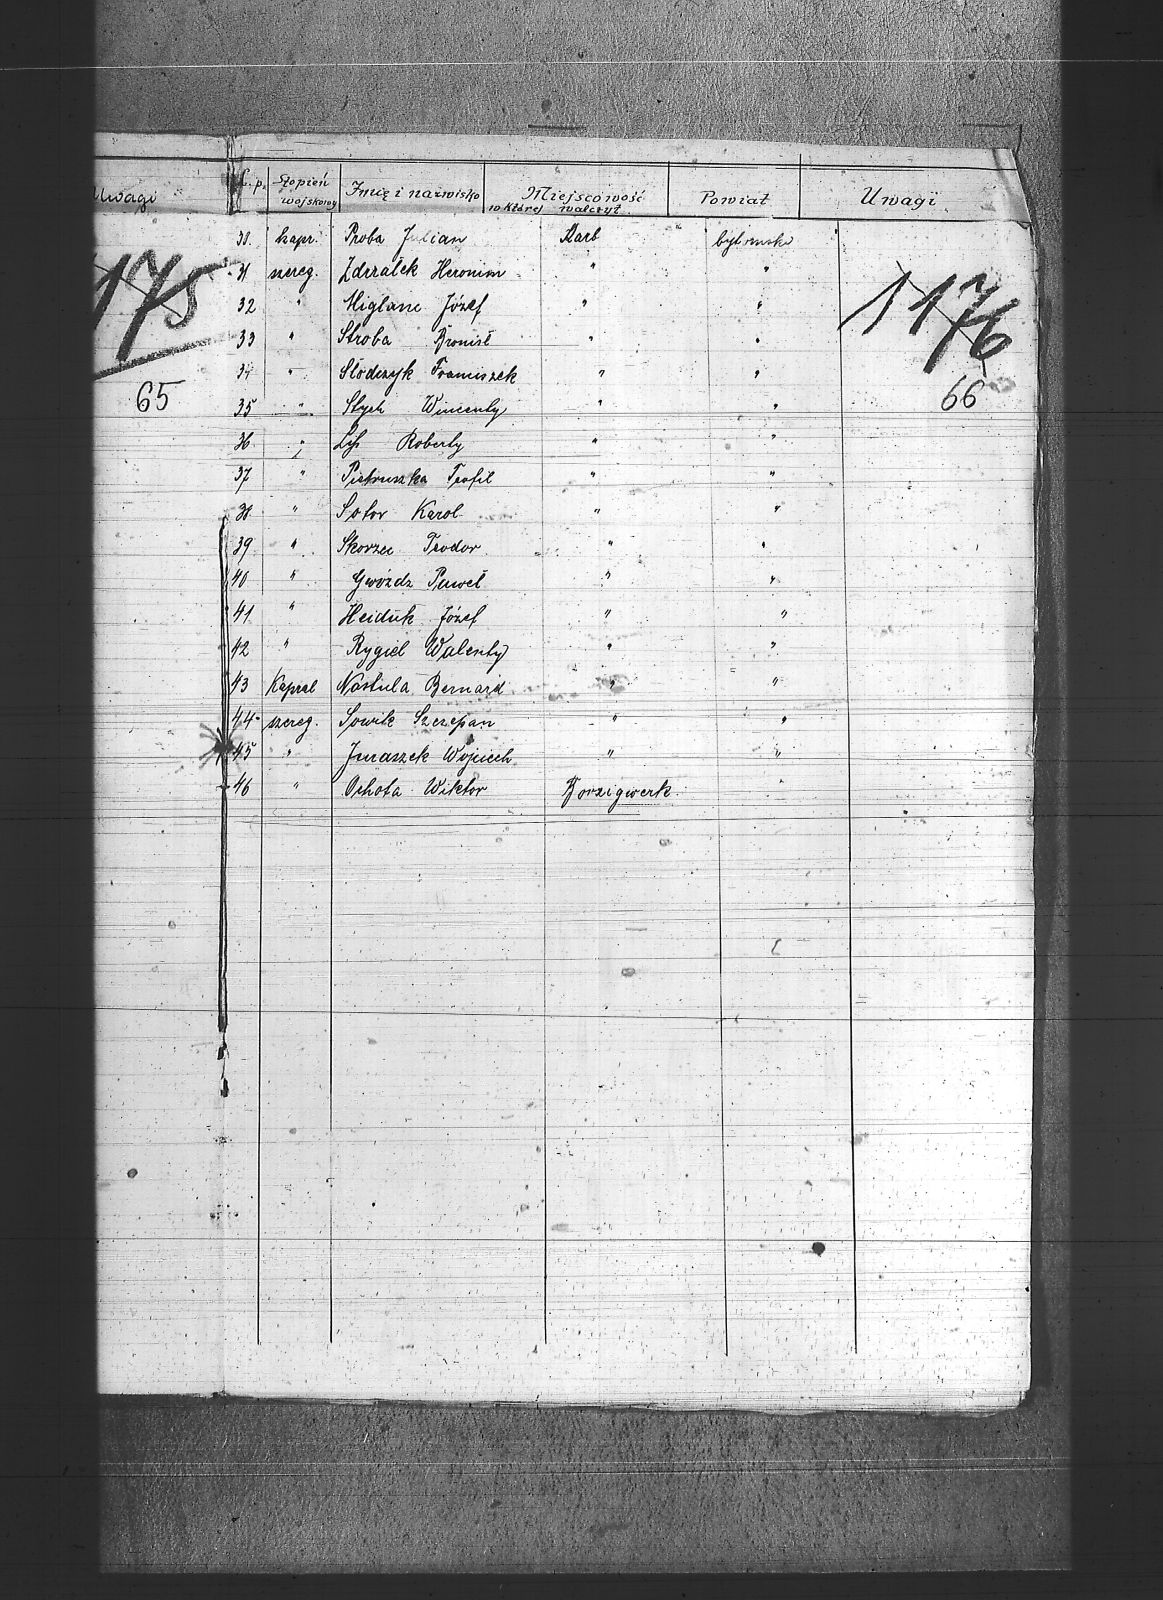 Uwagi
175
65
L.p. Stopień wojskowy Imię i nazwisko Miejscowość w której walczył Powiat Uwagi
1176
66
30. kapr. Proba Julian Karb bytomski
31 szereg. Zdrzałek Heronim " "
32 " Miglanc Józef " "
33 " Stroba Bronisł " "
34 " Słodczyk Franciszek " "
35 " Stych Wincenty " "
36 " Lys Roberty " "
37 " Pietruszka Teofil " "
38 " Sotor Karol " "
39 " Skorzec Teodor " "
40 " Gwóźdz Paweł " "
41 " Heiduk Józef " "
42 " Rygiel Walenty " "
43 Kapral Nastula Bernard " "
44 szereg. Sowik Szczepan " "
45 " Juraszek Wojciech " "
46 " Ochota Wiktor Borzigwerk "